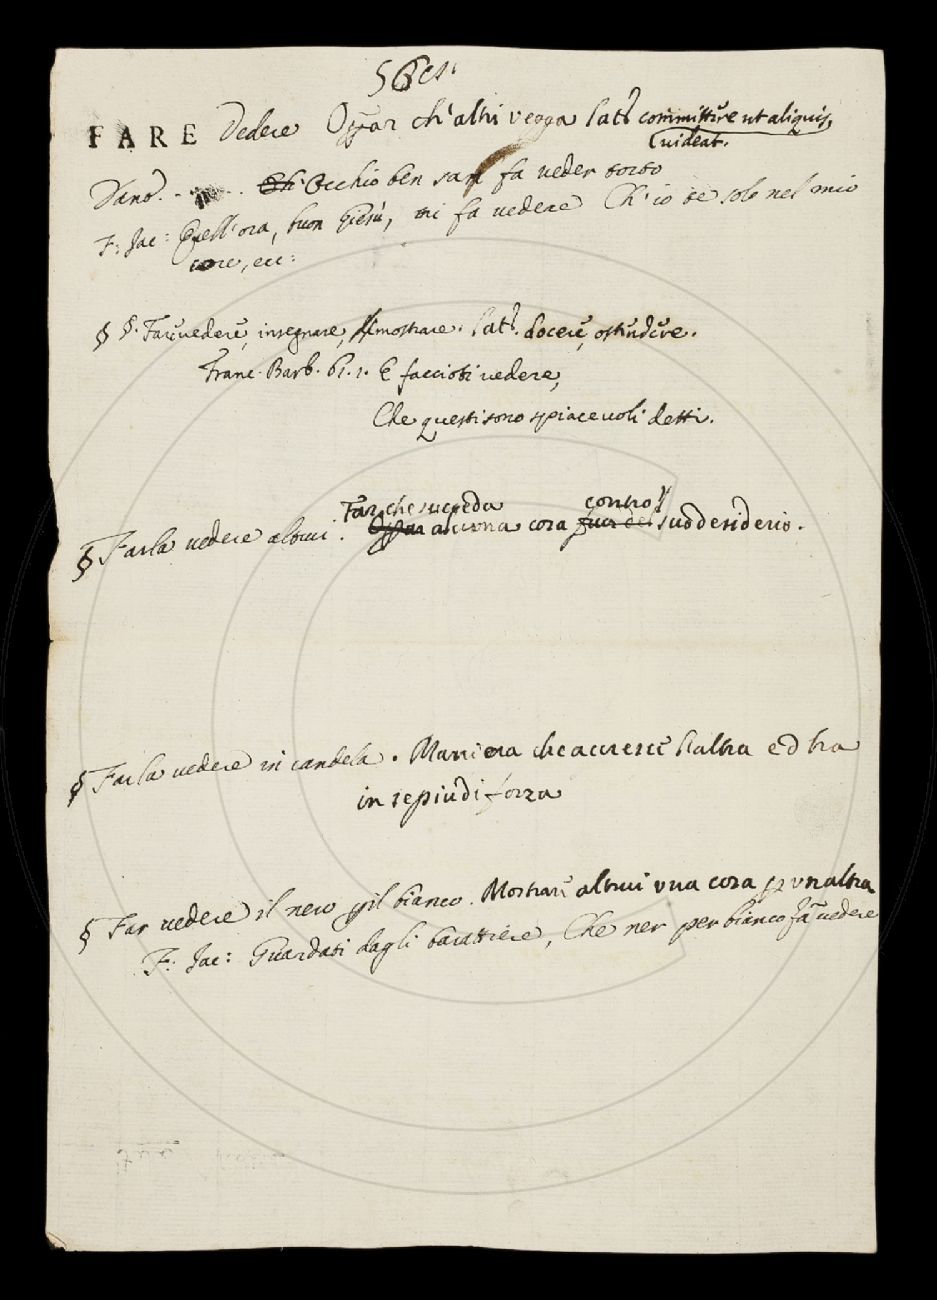 FARE Vedere Oprar ch'altri vegga lat. committere ut aliquis
videat.
Dant. Occhio ben san fa veder torto
F: Jac: Quell'ora, buon Giesù, mi fa vedere Ch'io te solo nel mio
core, ecc:
§ §. Far vedere, insegnare, mostrare. lat. docere, ostendere.
Franc. Barb. 61. 1. E faccioti vedere,
Che questi sono spiacevoli detti.
Far che succeda contro 'l
§ Farla vedere altrui. Oprar alcuna cosa fuor del suo desiderio.
§ Farla vedere in candela. Maniera che accresce l'altra ed ha
in se più di forza
§ Far vedere il nero p il bianco. Mostrare altrui una cosa p un altra
F: Jac: Guardati dagli barattiere, Che ner per bianco fa vedere